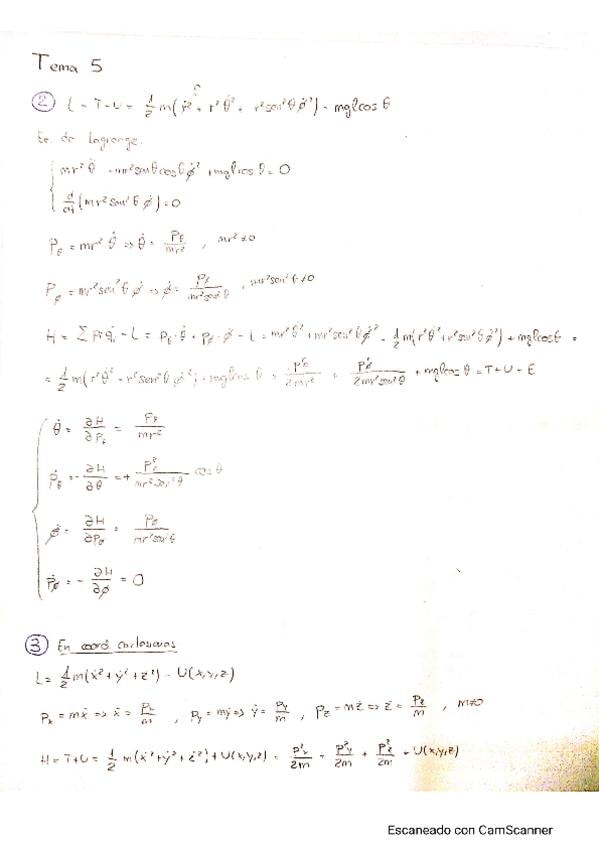 Tema 5
② L = T - U = 1/2 m(ṙ² + r²θ̇² + r²sen²θ φ̇²) - mglcosθ
Ec. de Lagrange.
mr²θ̈ - mr²senθcosθφ̇² + mglcosθ = 0
d/dt (mr²sen²θ φ̇) = 0
Pθ = mr²θ̇ => θ̇ = Pθ/mr² , mr² ≠ 0
Pφ = mr²sen²θ φ̇ => φ̇ = Pφ/mr²sen²θ , mr²sen²θ ≠ 0
H = Σ Pᵢq̇ᵢ - L = Pθ·θ̇ + Pφ·φ̇ - L = mr²θ̇² + mr²sen²θφ̇² - 1/2 m(r²θ̇² + r²sen²θφ̇²) + mglcosθ =
= 1/2 m(r²θ̇² + r²sen²θ φ̇²) + mglcosθ = P²θ/2mr² + P²φ/2mr²sen²θ + mglcosθ = T+U = E
θ̇ = ∂H/∂Pθ = Pθ/mr²
Ṗθ = -∂H/∂θ = + P²φ/mr²sen³θ cosθ
φ̇ = ∂H/∂Pφ = Pφ/mr²sen²θ
Ṗφ = -∂H/∂φ = 0
③ En coord. cartesianas
L = 1/2 m(ẋ² + ẏ² + ż²) - U(x,y,z)
Pₓ = mẋ => ẋ = Pₓ/m , Py = mẏ => ẏ = Py/m , Pz = mż => ż = Pz/m , m≠0
H = T+U = 1/2 m(ẋ² + ẏ² + ż²) + U(x,y,z) = P²ₓ/2m + P²y/2m + P²z/2m + U(x,y,z)
Escaneado con CamScanner